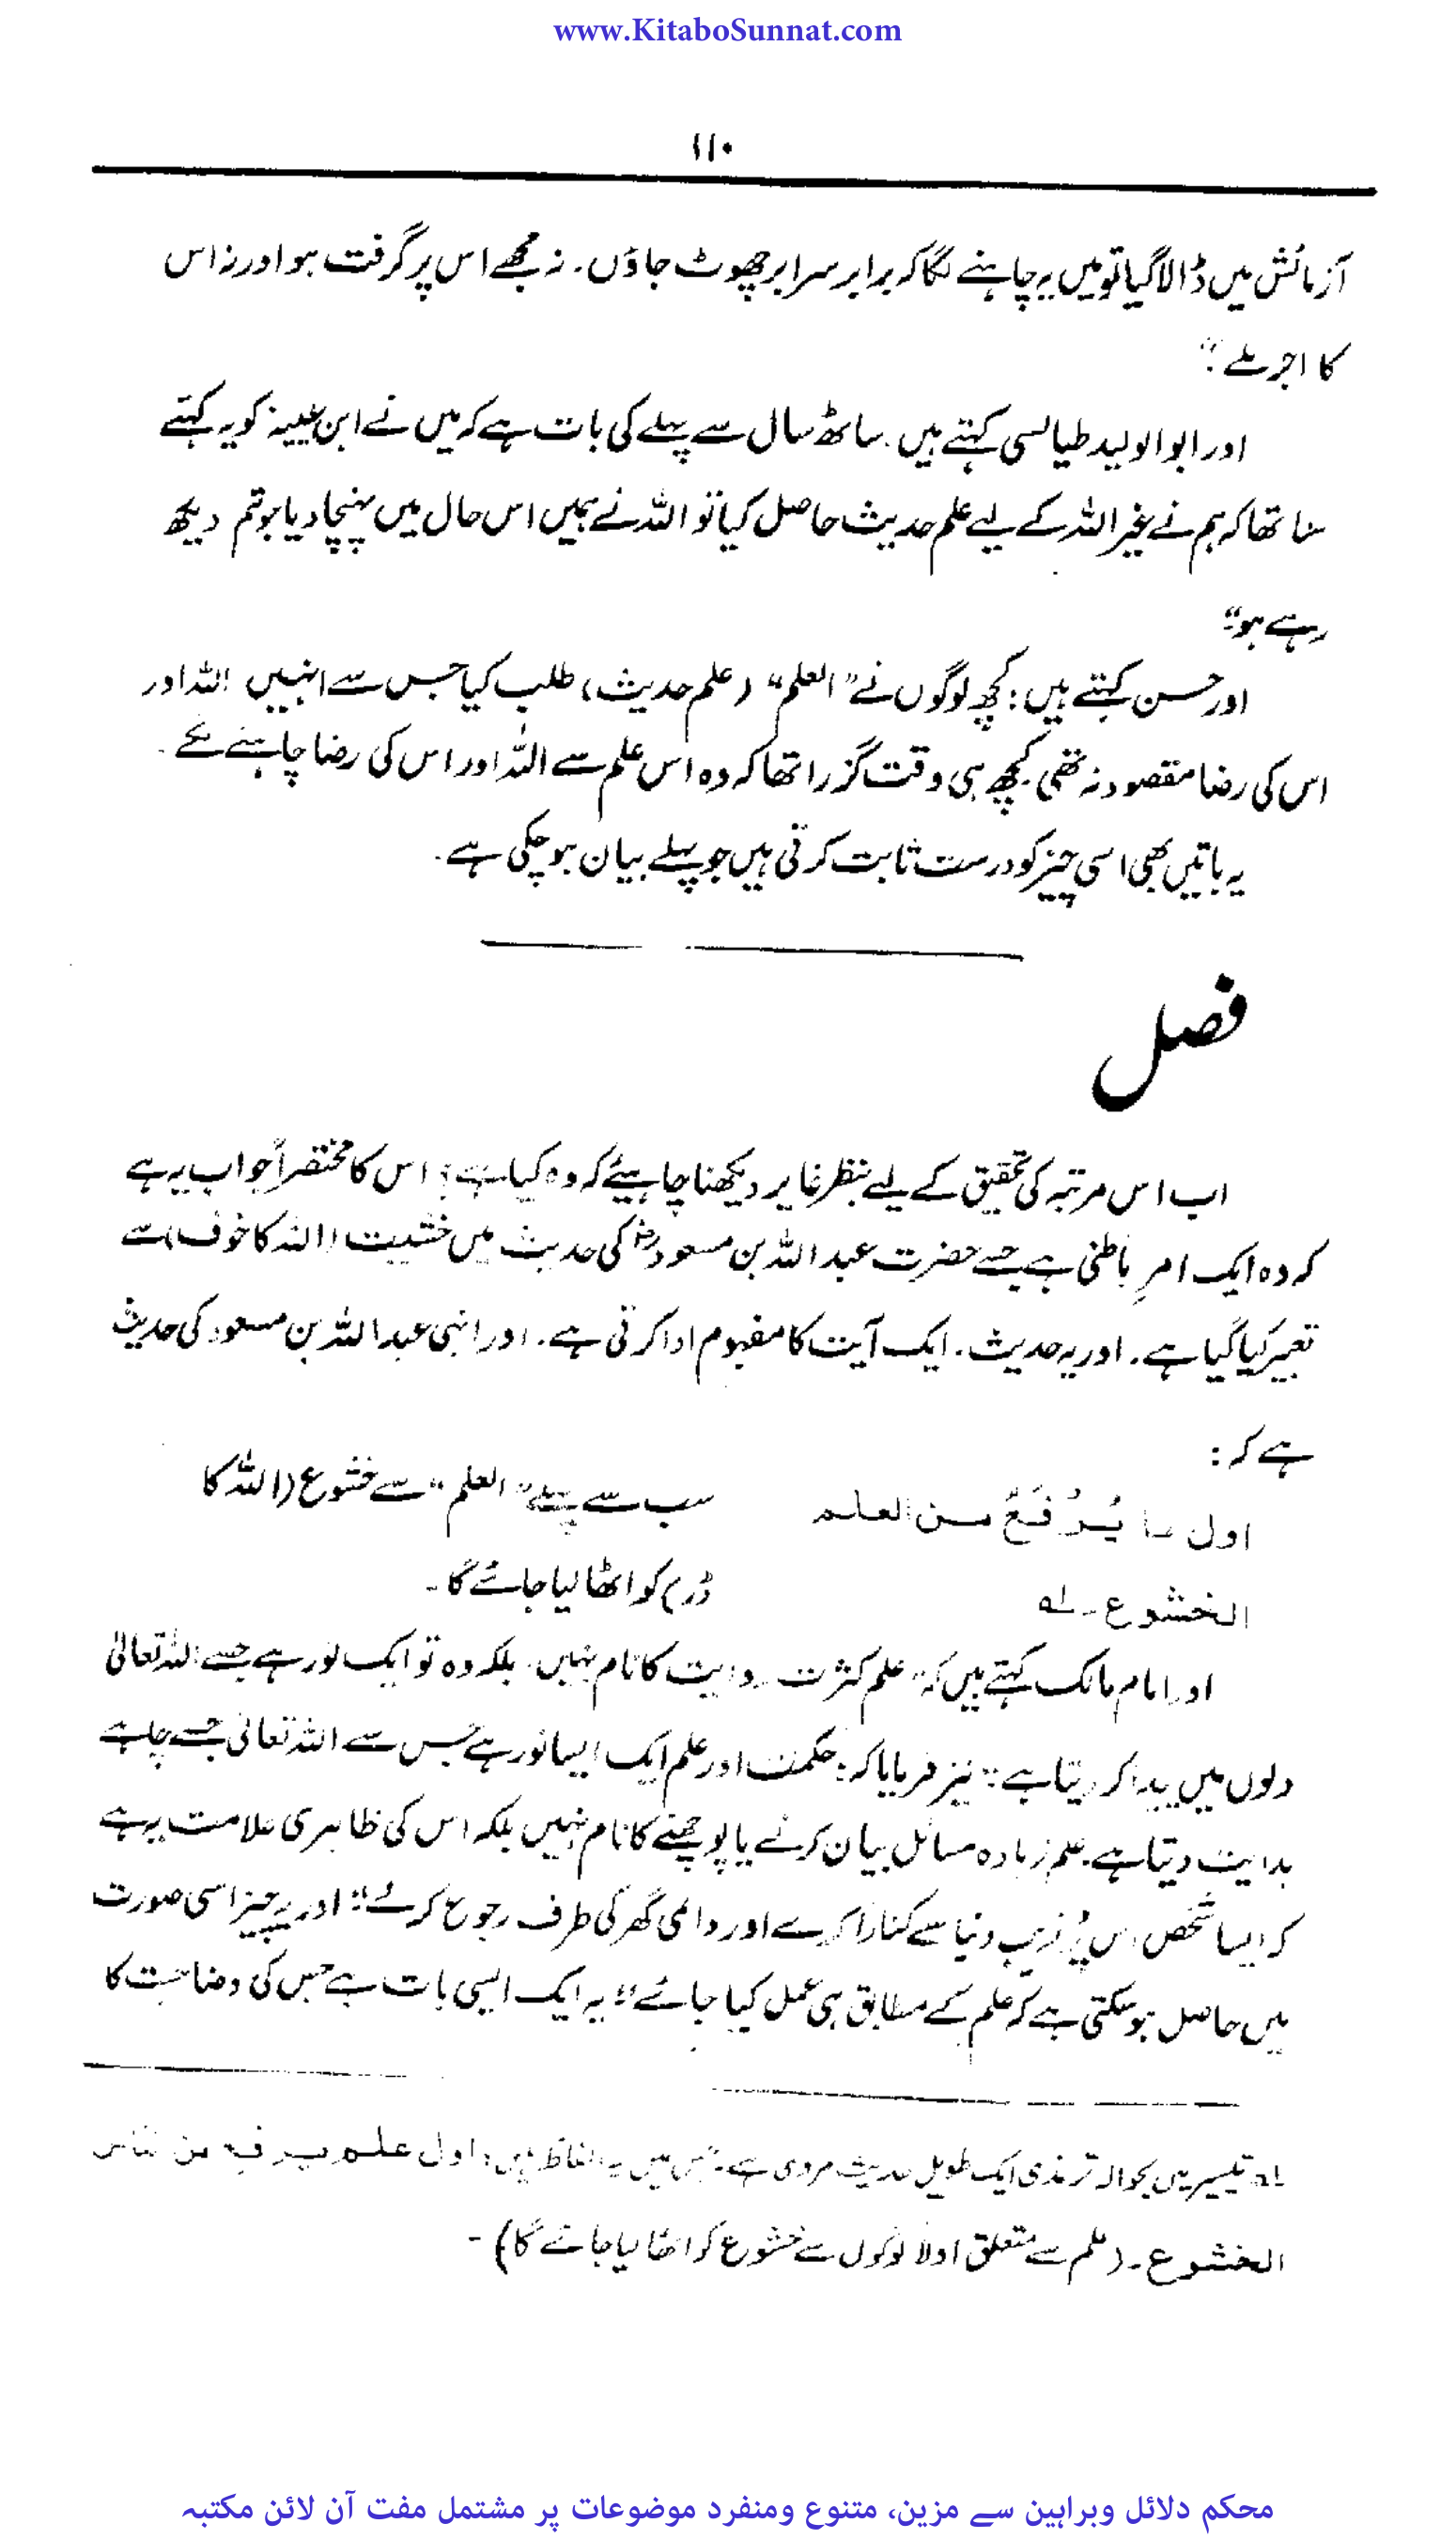 www.KitaboSunnat.com
۱۱۰
آزمائش میں ڈالا گیا تو میں یہ چاہنے لگا کہ برابر سرابر چھوٹ جاؤں۔ نہ مجھے اس پر گرفت ہو اور نہ اس
کا اجر ملے؟“
اور ابوالولید طیالسی کہتے ہیں۔ ساٹھ سال سے پہلے کی بات ہے کہ میں نے ابن عیینہ کو یہ کہتے
سنا تھا کہ ہم نے غیر اللہ کے لیے علم حدیث حاصل کیا تو اللہ نے ہمیں اس حال میں پہنچا دیا جو تم دیکھ
رہے ہو“
اور حسن کہتے ہیں: کچھ لوگوں نے ”العلم“ (علم حدیث) طلب کیا جس سے انہیں اللہ اور
اس کی رضا مقصود نہ تھی۔ کچھ ہی وقت گزرا تھا کہ وہ اس علم سے اللہ اور اس کی رضا چاہنے لگے۔
یہ باتیں بھی اسی چیز کو درست ثابت کرتی ہیں جو پہلے بیان ہو چکی ہے۔
فصل
اب اس مرتبہ کی تحقیق کے لیے بنظر غایر دیکھنا چاہیئے کہ وہ کیا ہے؟ اس کا مختصراً جواب یہ ہے
کہ وہ ایک امرِ باطنی ہے جسے حضرت عبداللہ بن مسعودؓ کی حدیث میں خشیت (اللہ کا خوف) سے
تعبیر کیا گیا ہے۔ اور یہ حدیث۔ ایک آیت کا مفہوم ادا کرتی ہے۔ اور انہی عبداللہ بن مسعود کی حدیث
ہے کہ:
اول ما یُرْفَعُ من العلم
الخشوع۔ لہ
سب سے پہلے ”العلم“ سے خشوع (اللہ کا
ڈر) کو اٹھا لیا جائے گا۔
اور امام مالک کہتے ہیں کہ ”علم کثرت روایت کا نام نہیں۔ بلکہ وہ تو ایک نور ہے جسے اللہ تعالیٰ
دلوں میں پیدا کر دیتا ہے“ نیز فرمایا کہ: حکمت اور علم ایک ایسا نور ہے جس سے اللہ تعالیٰ جسے چاہے
ہدایت دیتا ہے۔ علم زیادہ مسائل بیان کرنے یا پوچھنے کا نام نہیں بلکہ اس کی ظاہری علامت یہ ہے
کہ ایسا شخص اس پُر فریب دنیا سے کنارا کرے اور دائمی گھر کی طرف رجوع کرے“ اور یہ چیز اسی صورت
میں حاصل ہو سکتی ہے کہ علم کے مطابق ہی عمل کیا جائے“ یہ ایک ایسی بات ہے جس کی وضاحت کا
لہ تیسیر میں بحوالہ ترمذی ایک طویل حدیث مروی ہے۔ جس میں یہ الفاظ ہیں: اول علم یرفع من الناس
الخشوع۔ (علم سے متعلق اولاً لوگوں سے خشوع کو اٹھا لیا جائے گا)۔
محکم دلائل وبراہین سے مزین، متنوع ومنفرد موضوعات پر مشتمل مفت آن لائن مکتبہ